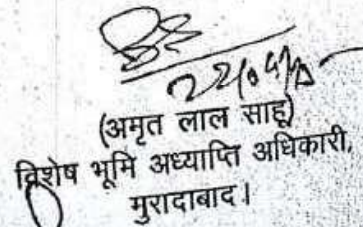 (अमृत लाल साहू)
विशेष भूमि अध्याप्ति अधिकारी,
मुरादाबाद।